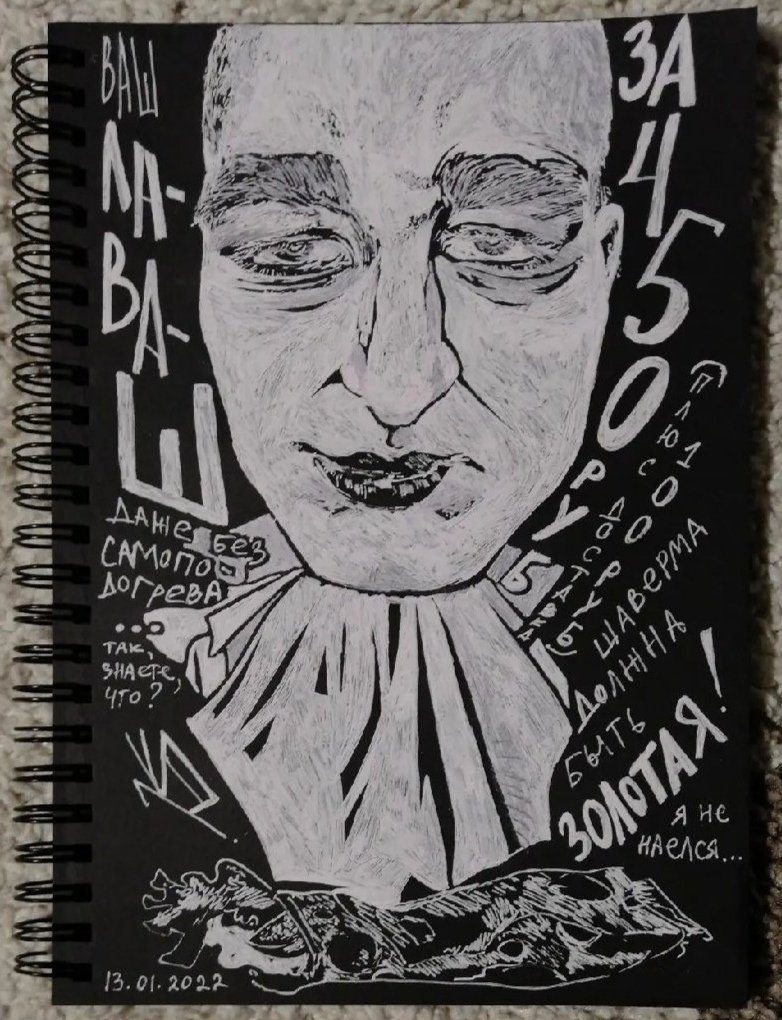 ВАШ
ЛА-
ВА-
Ш
ДАЖЕ БЕЗ
САМОПО
ДОГРЕВА
...
ТАК,
ЗНАЕТЕ,
ЧТО?
ЗА
450
РУБ
ПЛЮС 100
РУБ
ДОСТАВКА
ШАВЕРМА
ДОЛЖНА
БЫТЬ
ЗОЛОТАЯ!
Я НЕ
НАЕЛСЯ...
13.01.2022